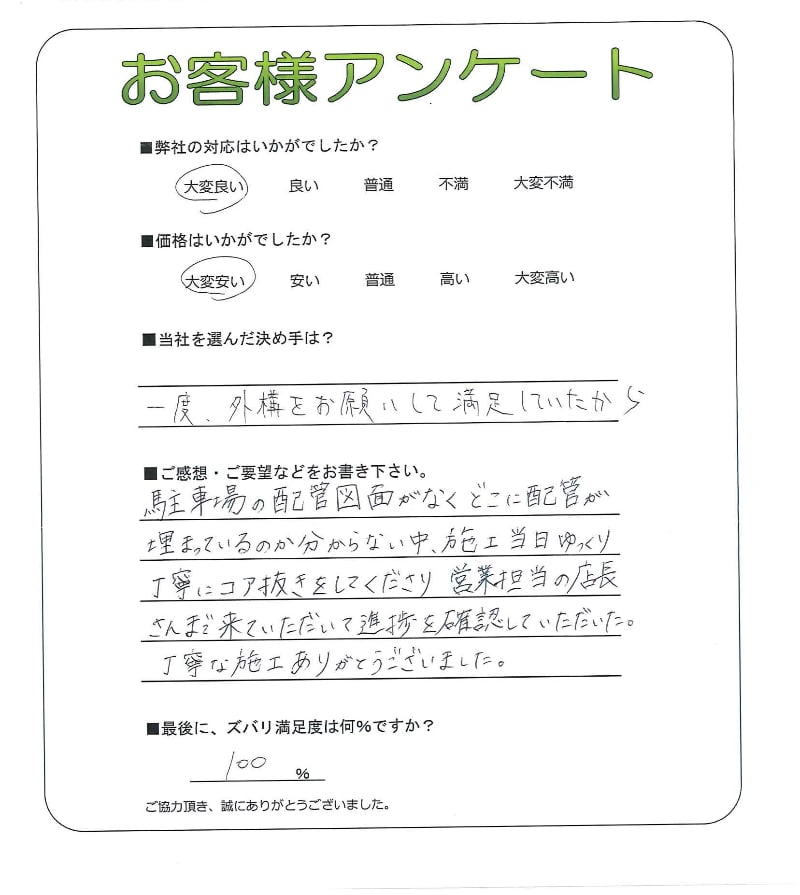 お客様アンケート
■弊社の対応はいかがでしたか？
大変良い 良い 普通 不満 大変不満
■価格はいかがでしたか？
大変安い 安い 普通 高い 大変高い
■当社を選んだ決め手は？
一度、外構をお願いして満足していたから
■ご感想・ご要望などをお書き下さい。
駐車場の配管図面がなくどこに配管が
埋まっているのか分からない中、施工当日ゆっくり
丁寧にコア抜きをしてくださり 営業担当の店長
さんまで来ていただいて進捗を確認していただいた。
丁寧な施工ありがとうございました。
■最後に、ズバリ満足度は何％ですか？
100 %
ご協力頂き、誠にありがとうございました。